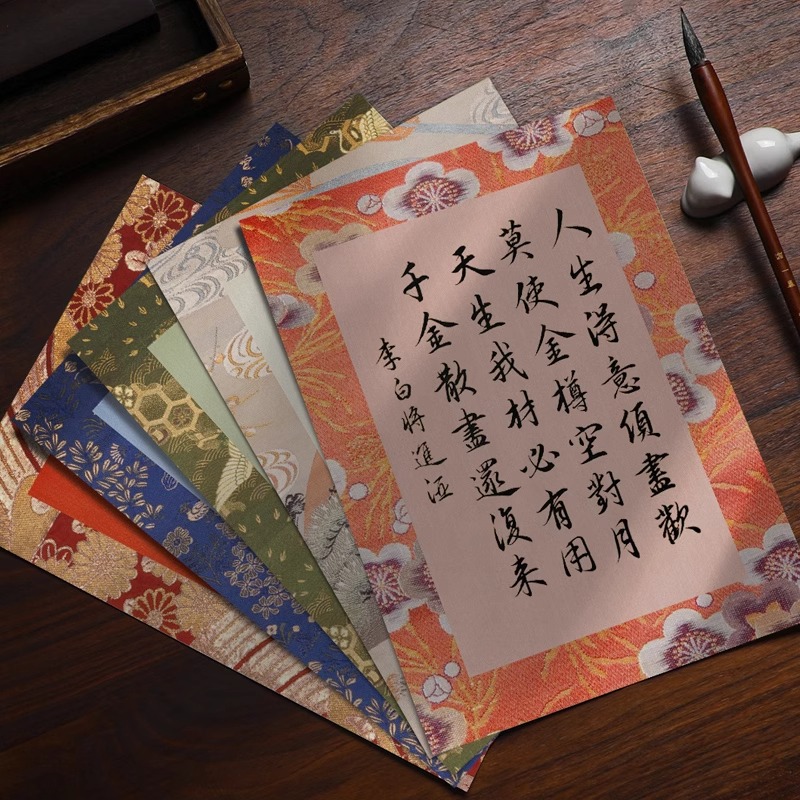 人生得意須盡歡
莫使金樽空對月
天生我材必有用
千金散盡還復来
李白將進酒